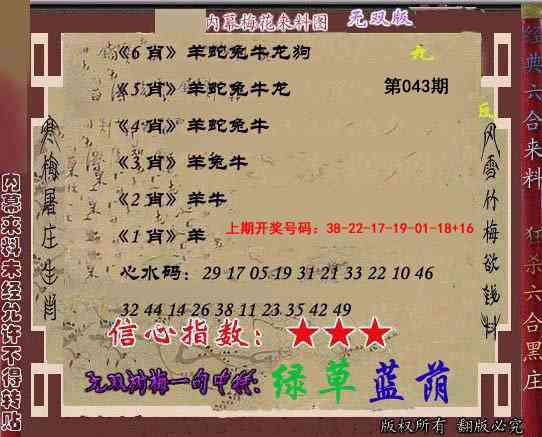 内幕梅花来料图 无双版
《6肖》羊蛇兔牛龙狗
《5肖》羊蛇兔牛龙
第043期
《4肖》羊蛇兔牛
《3肖》羊兔牛
《2肖》羊牛
上期开奖号码：38-22-17-19-01-18+16
《1肖》羊
心水码：29 17 05 19 31 21 33 22 10 46
32 44 14 26 38 11 23 35 42 49
信心指数：★★★
绿草蓝荫
版权所有 翻版必究
寒梅屠庄生肖
风雪竹梅欲钱料
内幕来料未经允许不得转贴
经典六合来料
狂杀六合黑庄